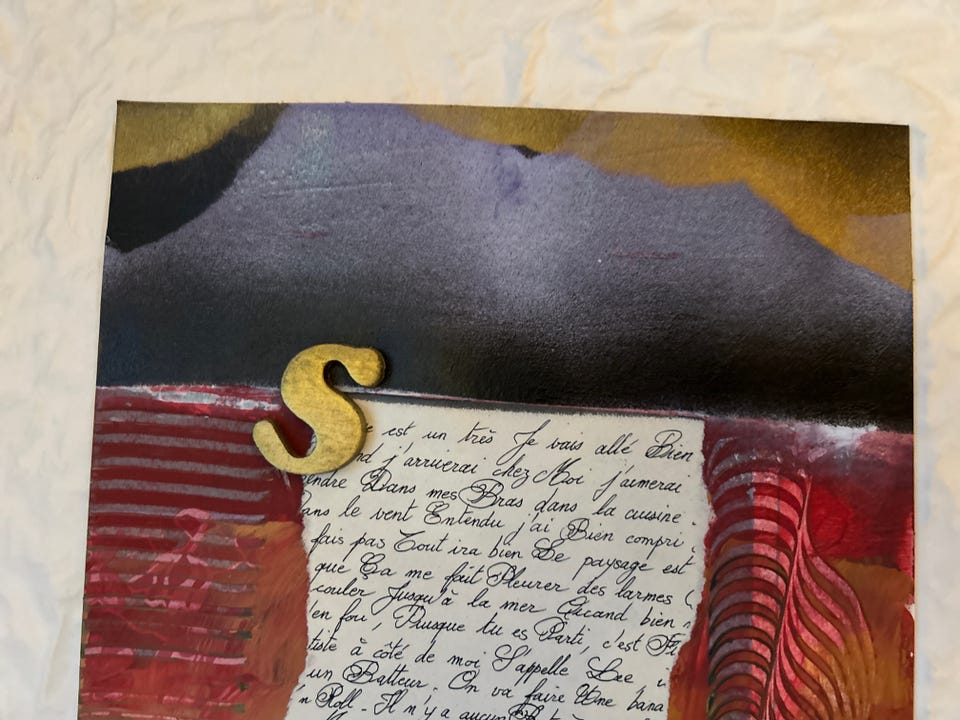 S
e est un très Je vais allé Bien
nd j'arriverai chez Moi j'aimerai
endre Dans mes Bras dans la cuisine.
ans le vent Entendu j'ai Bien compri
fais pas Tout ira bien Le paysage est
que Ça me fait Pleurer des larmes
couler Jusqu'à la mer Quand bien
en fou, Puisque tu es Parti, c'est
tiste à côté de moi S'appelle Lee
un Batteur. On va faire Une bana
'n Roll - Il n'y a aucun